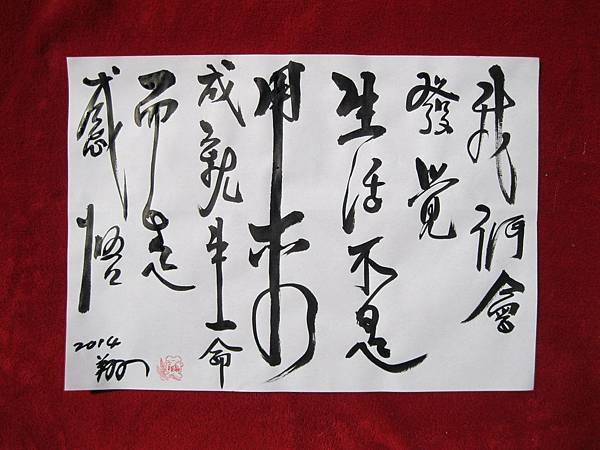 我們會
發覺
生活不是
用來
成就生命
而是
感悟
2014
翔